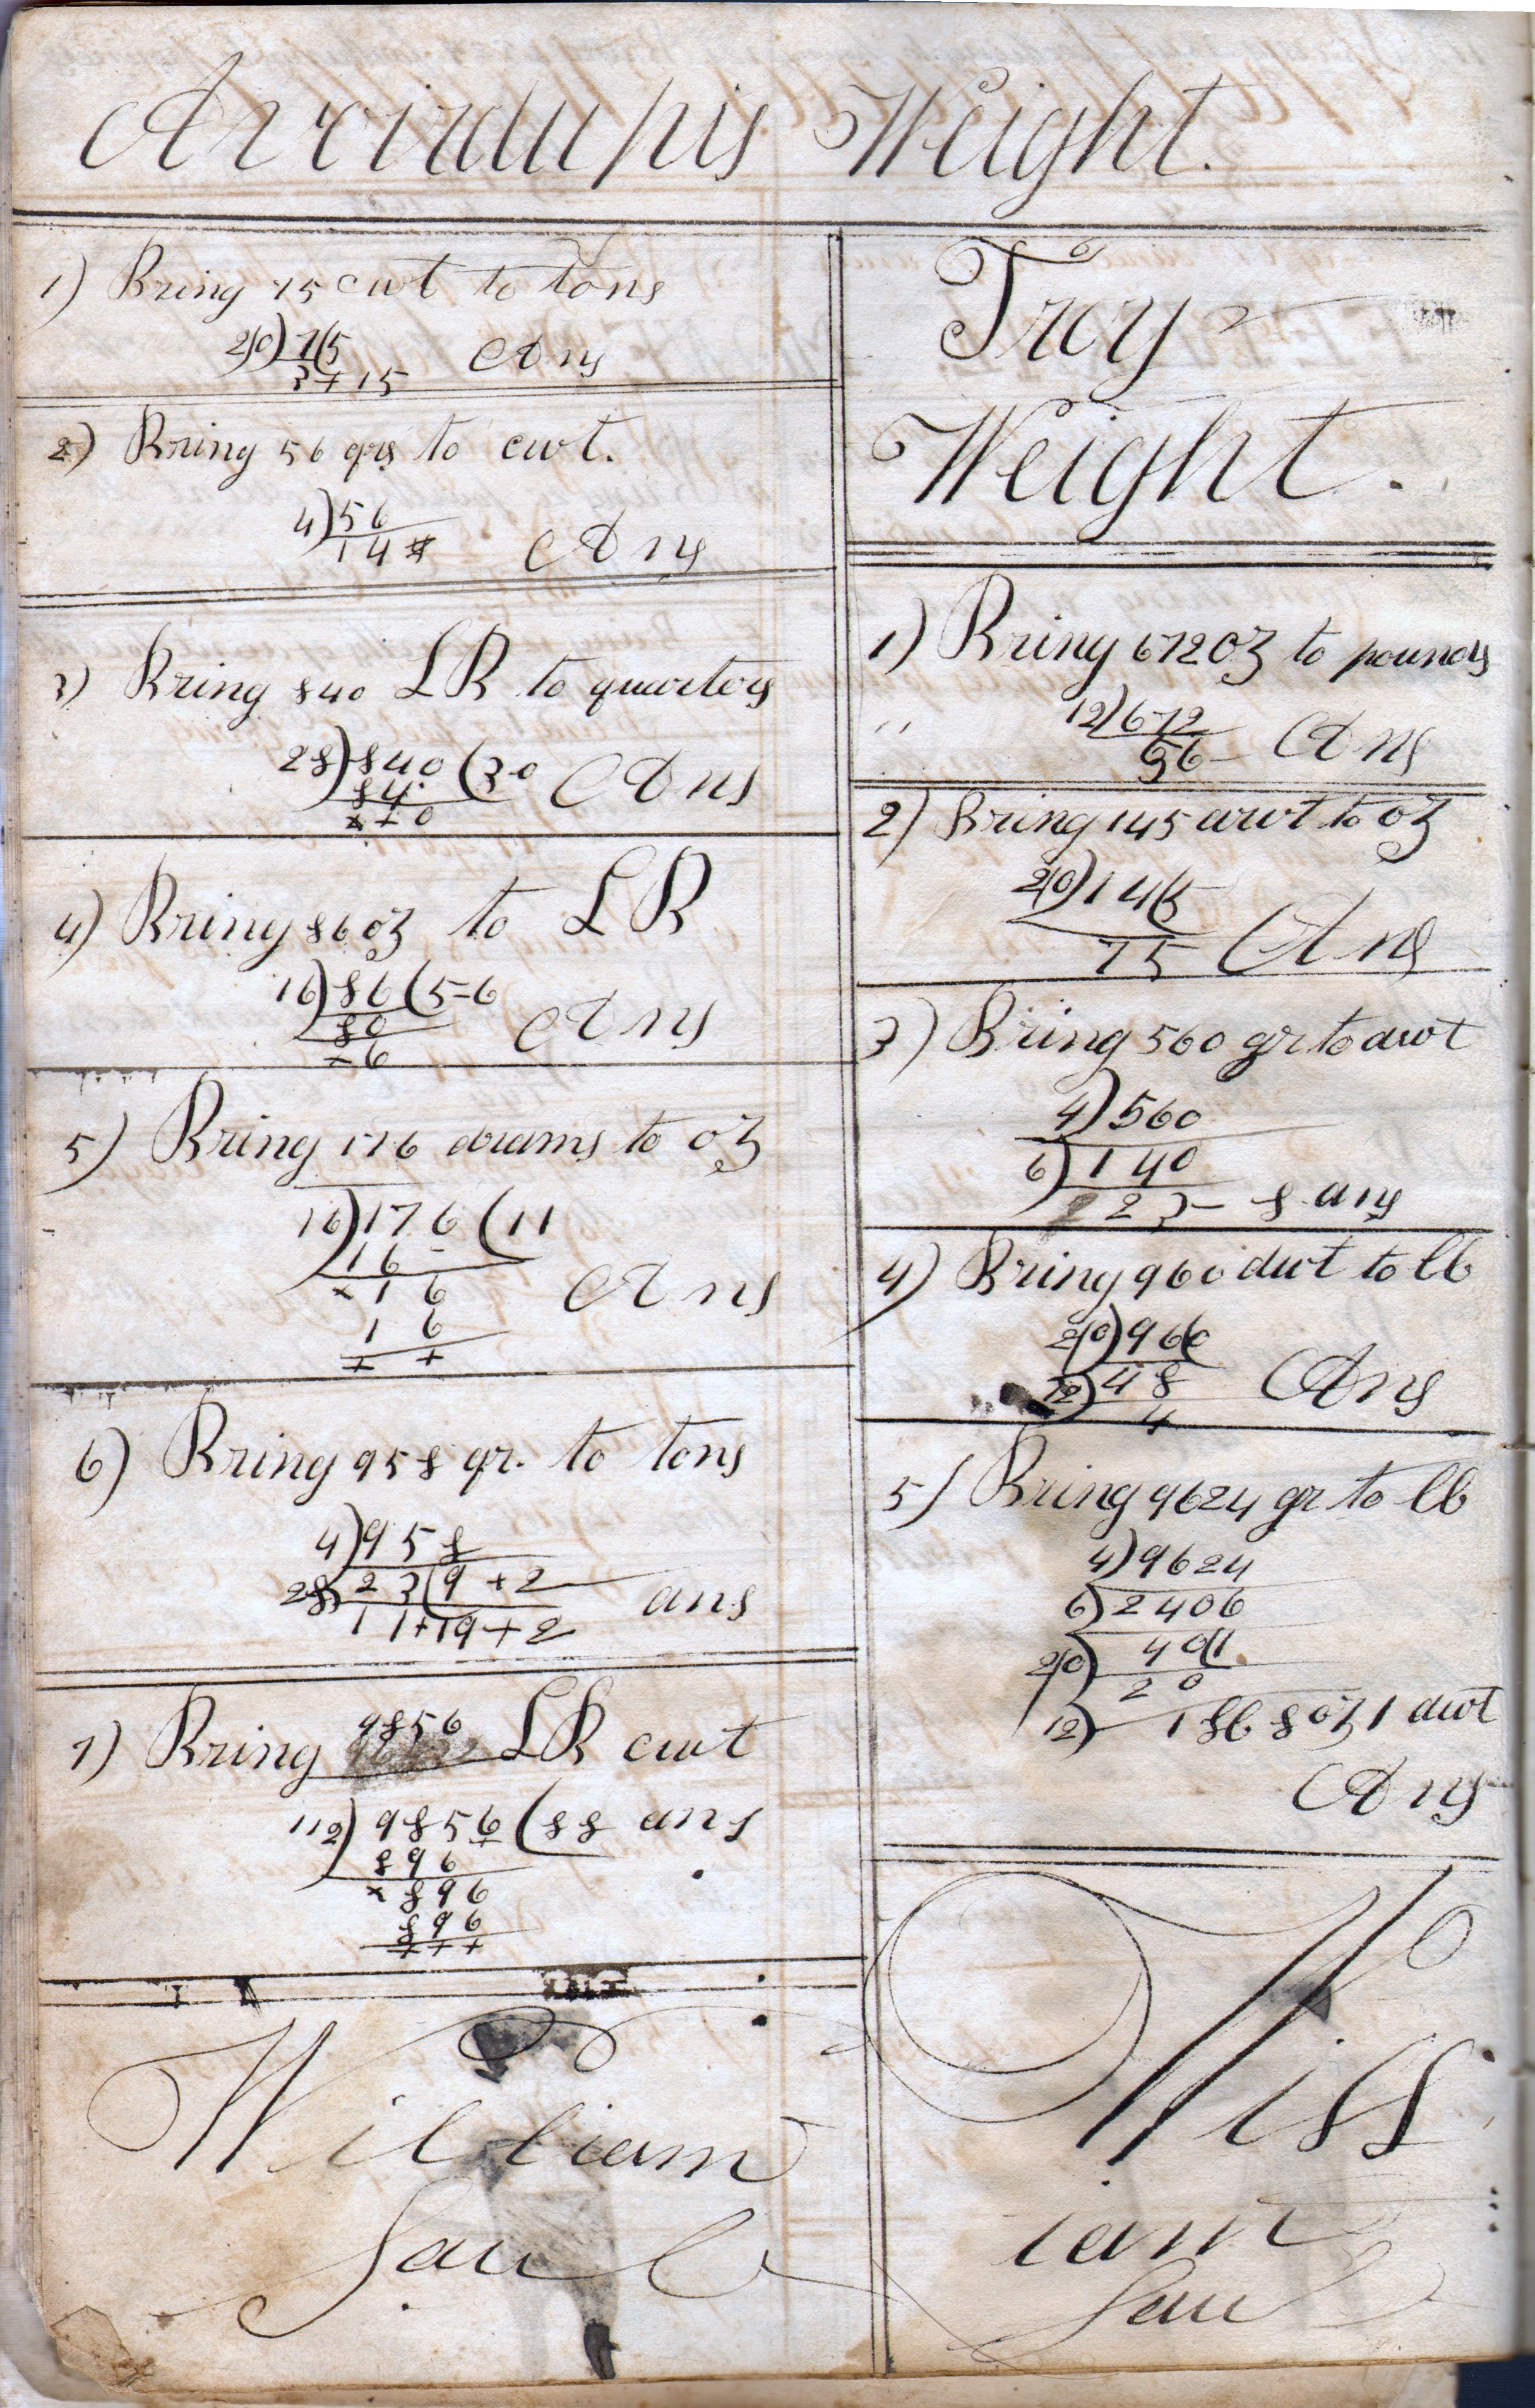 Avvirdupis Weight.
1) Bring 75 cwt to tons
2|0) 7|5
3 + 15 Ans
2) Bring 56 qrs to cwt.
4) 56
14 Ans
3) Bring 840 LB to quarters
28) 840 (30 Ans
84
x+0
4) Bring 86 oz to LB
16) 86 (5-6
80 Ans
x6
5) Bring 176 drams to oz
16) 176 (11
16
x16 Ans
16
+ +
6) Bring 958 qr. to tons
4) 958
2|0) 23|9 + 2 ans
11 + 19 + 2
7) Bring 9856 LB cwt
112) 9856 (88 ans
896
x896
896
+++
William
Saul
Troy
Weight.
1) Bring 672 oz to pounds
12) 672
56 Ans
2) Bring 145 dwt to oz
2|0) 14|5
75 Ans
3) Bring 560 gr to dwt
4) 560
6) 140
23 - 8 ans
4) Bring 960 dwt to lb
2|0) 96|0
12) 48 Ans
4
5) Bring 9624 gr to lb
4) 9624
6) 2406
2|0) 40|1
20
12) 1 lb 8 oz 1 dwt
Ans
Will
iam
Saul